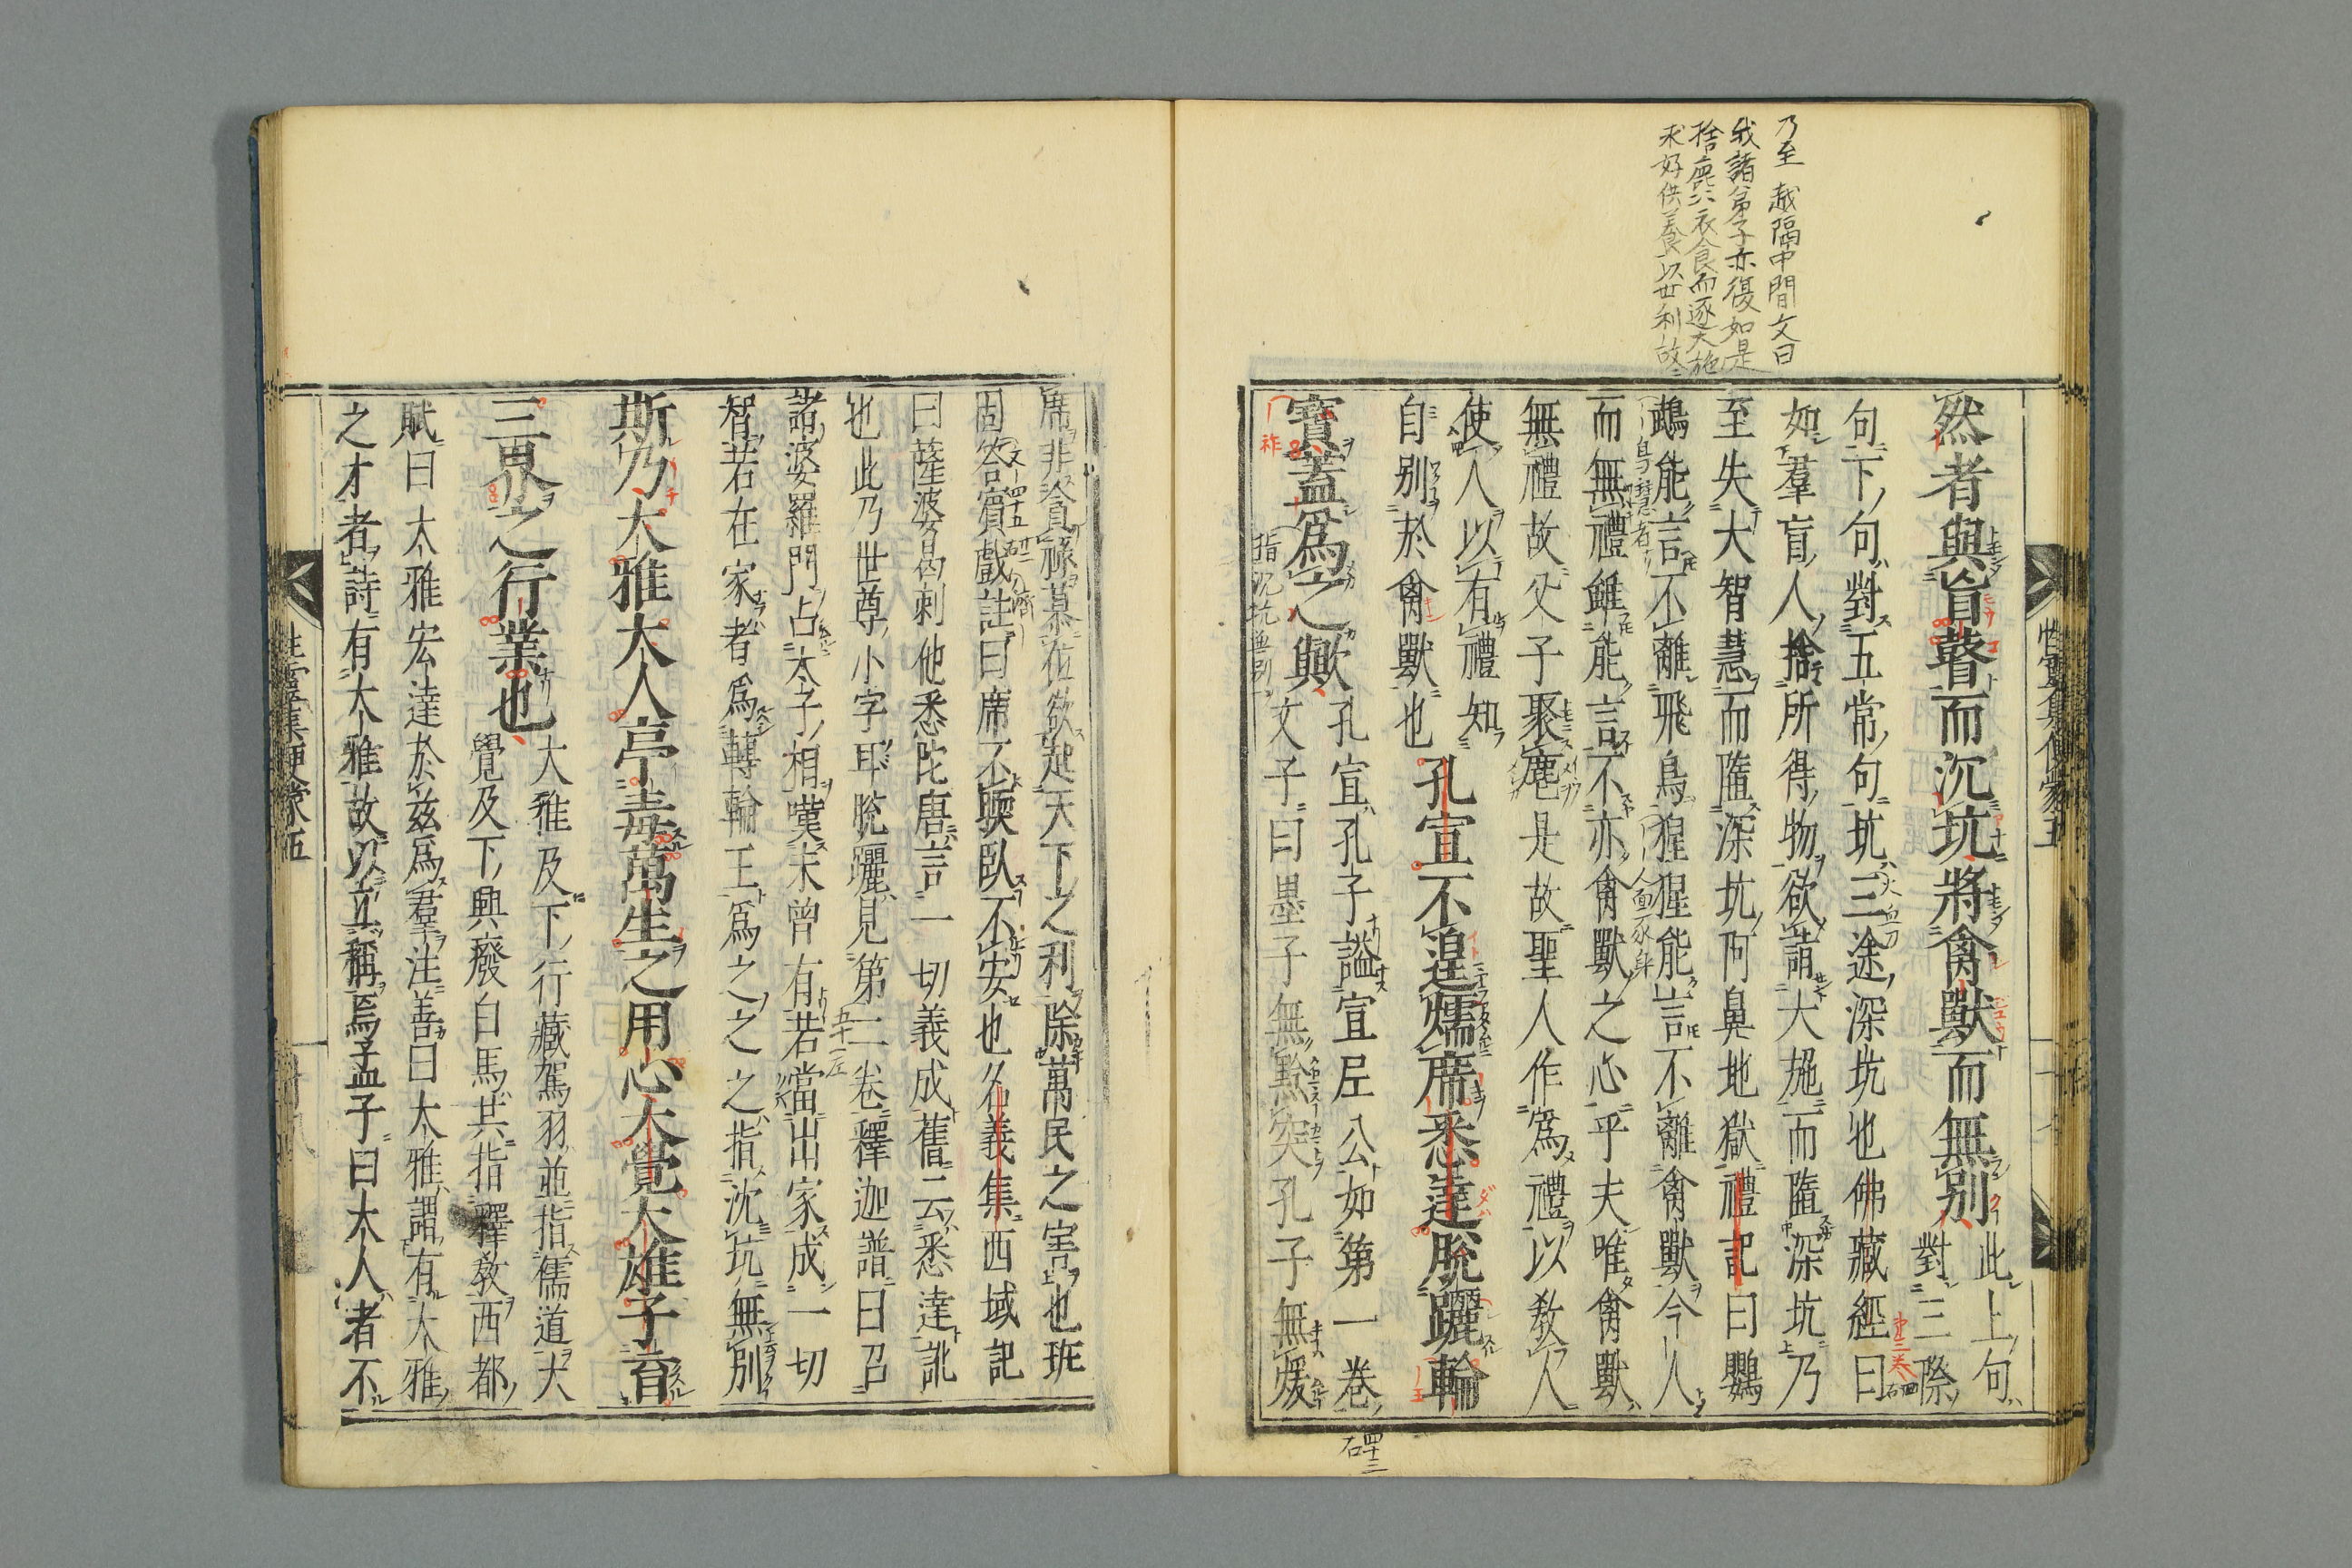 乃至 越隔中間文曰
我諸弟子亦復如是
捨麁衣食而逐大施
求好供養以世利故
然者與盲瞽而沉坑將禽獸而無別
此上句
對三際
句下句對五常句坑三途深坑也佛藏經曰
如羣盲人捨所得物欲詣大施而墮深坑乃
至失大智慧而墮深坑阿鼻地獄禮記曰鸚
鵡能言不離飛鳥猩猩能言不離禽獸今人
而無禮雖能言不亦禽獸之心乎夫唯禽獸
無禮故父子聚麀是故聖人作爲禮以教人
使人以有禮知
自別於禽獸也
孔宣不遑煗席悉達脫躧輪
寶蓋爲之歟
孔宣孔子謚宣尼公如第一卷
文子曰墨子無黔突孔子無煖
席非貪祿慕位欲起天下之利除萬民之害也班
固答賓戲註曰席不暝臥不安也名義集西域記
曰薩婆曷剌他悉陀唐言一切義成舊云悉達訛
也此乃世尊小字耳脫躧見第二卷釋迦譜曰召
諸婆羅門占太子相嘆未曾有若當出家成一切
智若在家者爲轉輪王爲之之之指沈坑無別
斯乃大雅大人亭毒萬生之用心大覺大雄子育
三界之行業也
大雅及下行藏駕羽並指儒道大
覺及下興廢白馬共指釋敎西都
賦曰大雅宏達於兹爲羣注善曰大雅謂有大雅
之才者詩有大雅故以立稱焉孟子曰大人者不
性靈集便蒙五